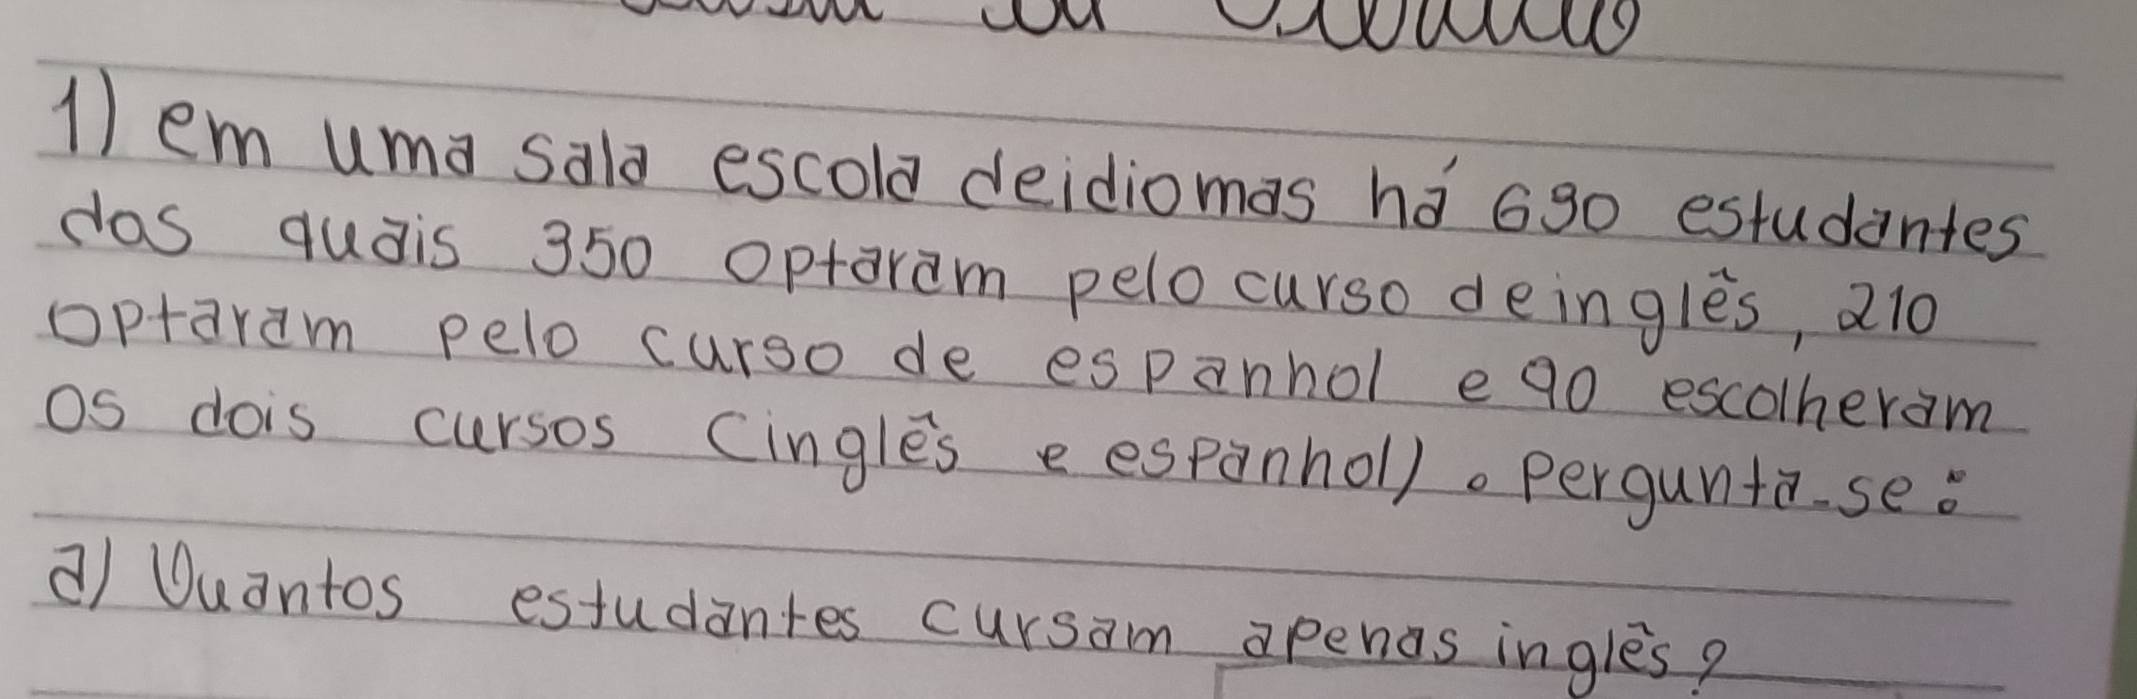 1) em uma sala escola deidiomas há 690 estudantes
das quais 350 optaram pelo curso deinglês, 210
optaram pelo curso de espanhol e 90 escolheram
os dois cursos (inglês e espanhol). Pergunta-se:
a) Quantos estudantes cursam apenas inglês?